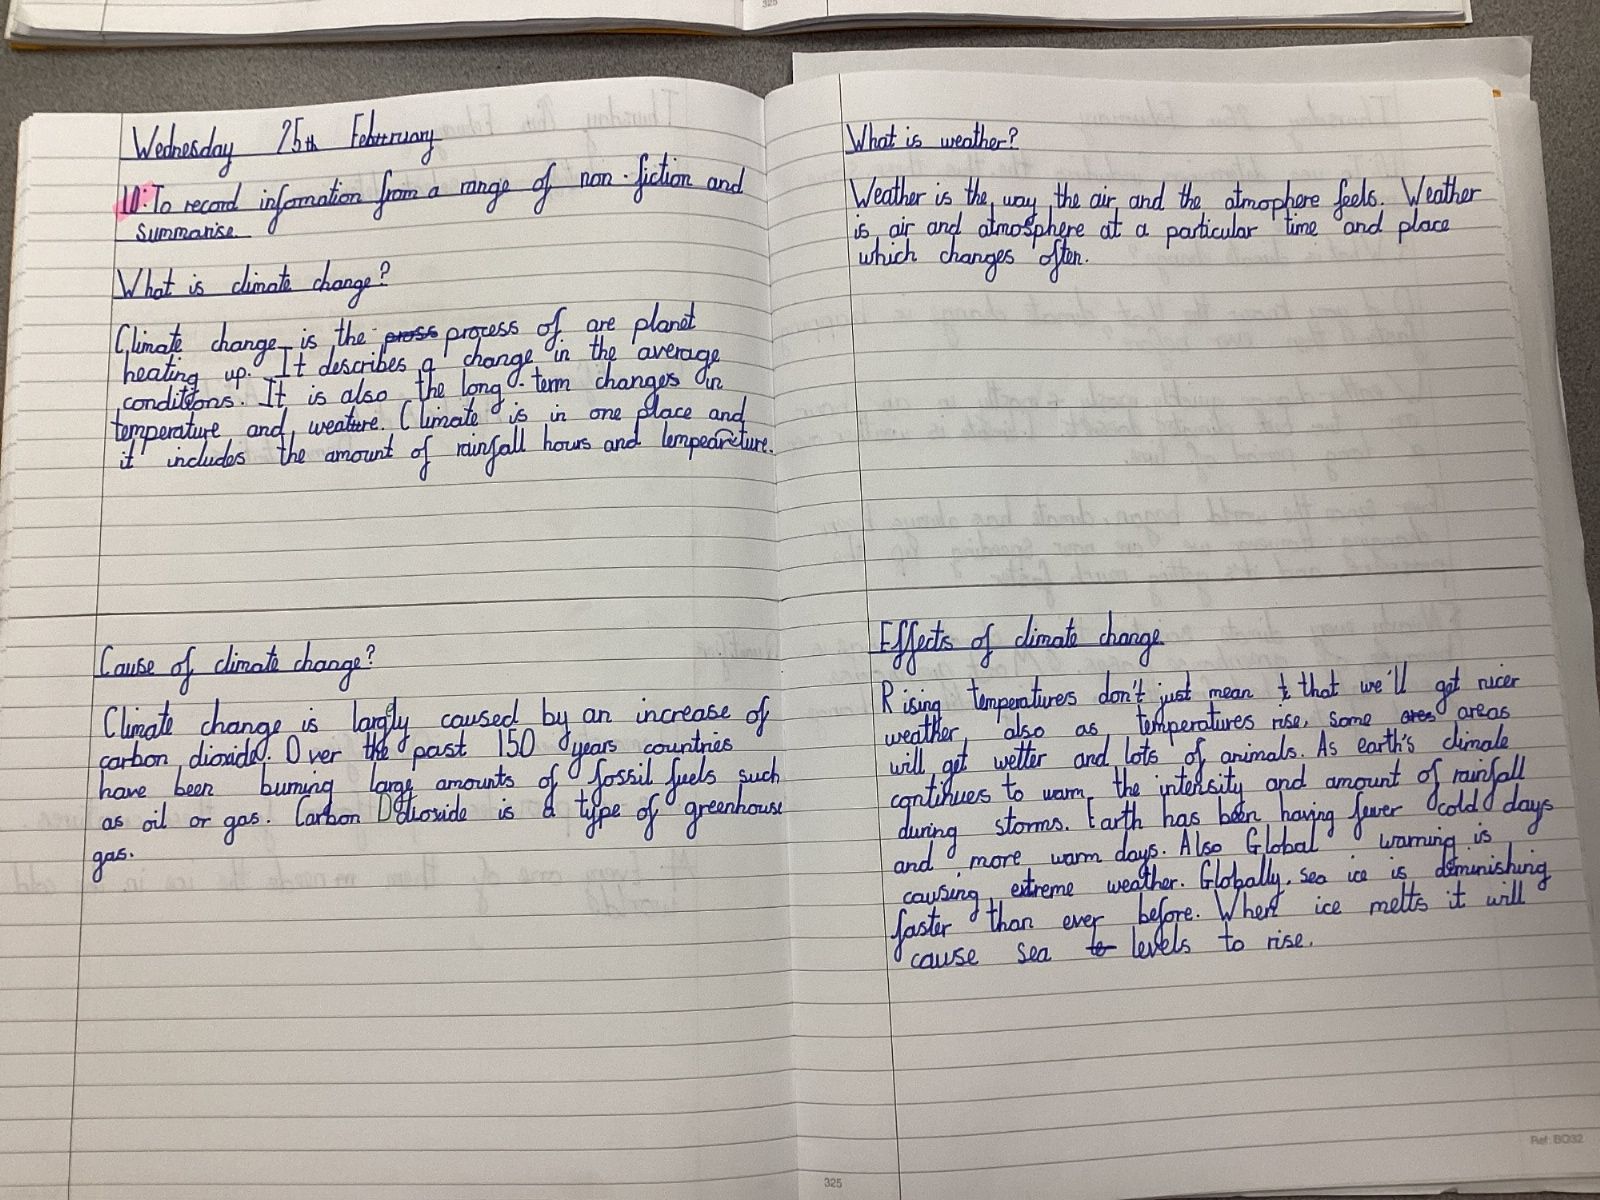 Wednesday 25th Februrary
LO: To record information from a range of non-fiction and
summarise
What is climate change?
Climate change is the pross process of are planet
heating up. It describes a change in the average
conditions. It is also the long-term changes in
temperature and weature. Climate is in one place and
it includes the amount of rainfall hours and tempearture.
Cause of climate change?
Climate change is largly caused by an increase of
carbon dioxide. Over the past 150 years countries
have been burning large amounts of fossil fuels such
as oil or gas. Carbon Ddioxide is a type of greenhouse
gas.
What is weather?
Weather is the way the air and the atmophere feels. Weather
is air and atmosphere at a particular time and place
which changes often.
Effects of climate change
Rising temperatures don't just mean t that we'll get nicer
weather, also as temperatures rise, some ares areas
will get wetter and lots of animals. As earth's climate
continues to warm, the intensity and amount of rainfall
during storms. Earth has been having fewer cold days
and more warm days. Also Global warning is
causing extreme weather. Globally, sea ice is deminishing
faster than ever before. When ice melts it will
cause sea te levels to rise.
325
Ref: BO32
325